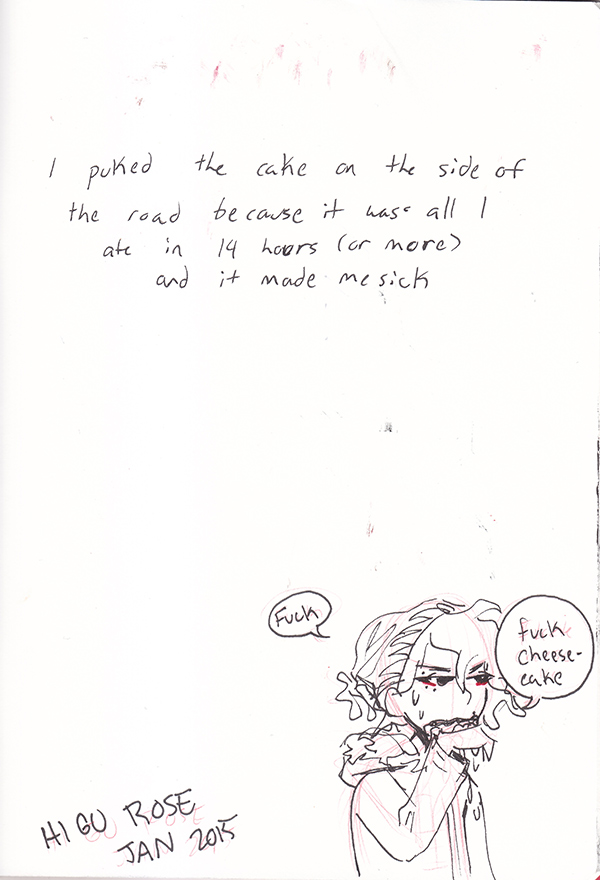 I puked the cake on the side of
the road because it was all I
ate in 14 hours (or more)
and it made me sick
Fuck
fuck
cheese-
cake
HI GU ROSE
JAN 2015